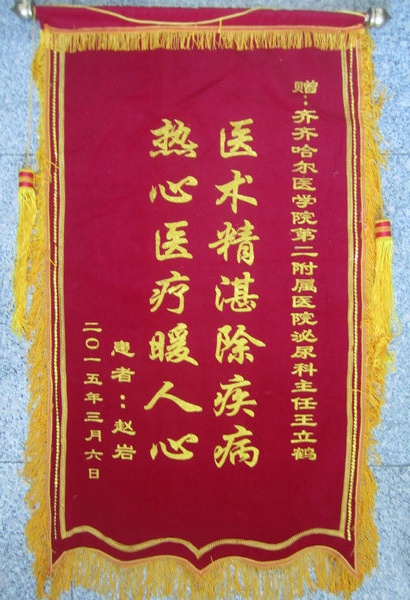 赠：齐齐哈尔医学院第二附属医院泌尿科主任王立鹤
医术精湛除疾病
热心医疗暖人心
患者：赵岩
二〇一五年三月六日